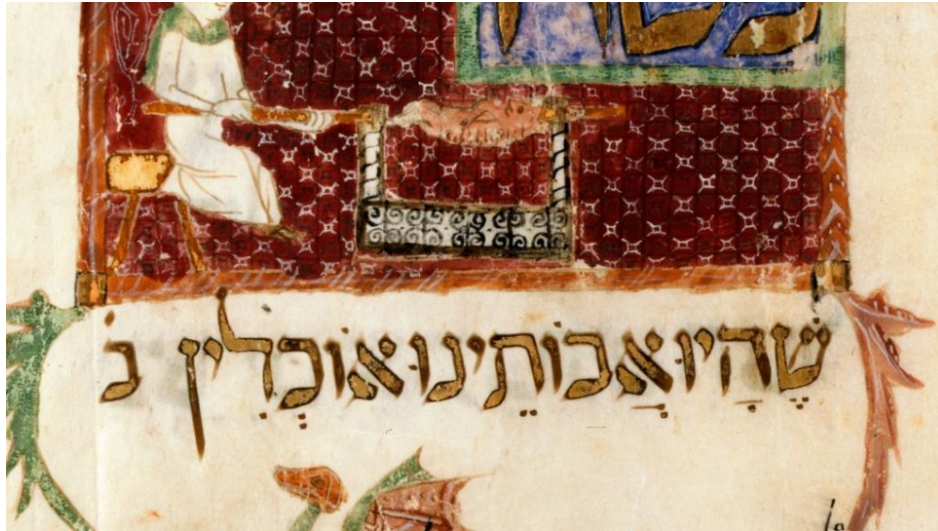 שֶׁהַיוּ אָבוֹתֵינוּ אוֹכְלִין ב